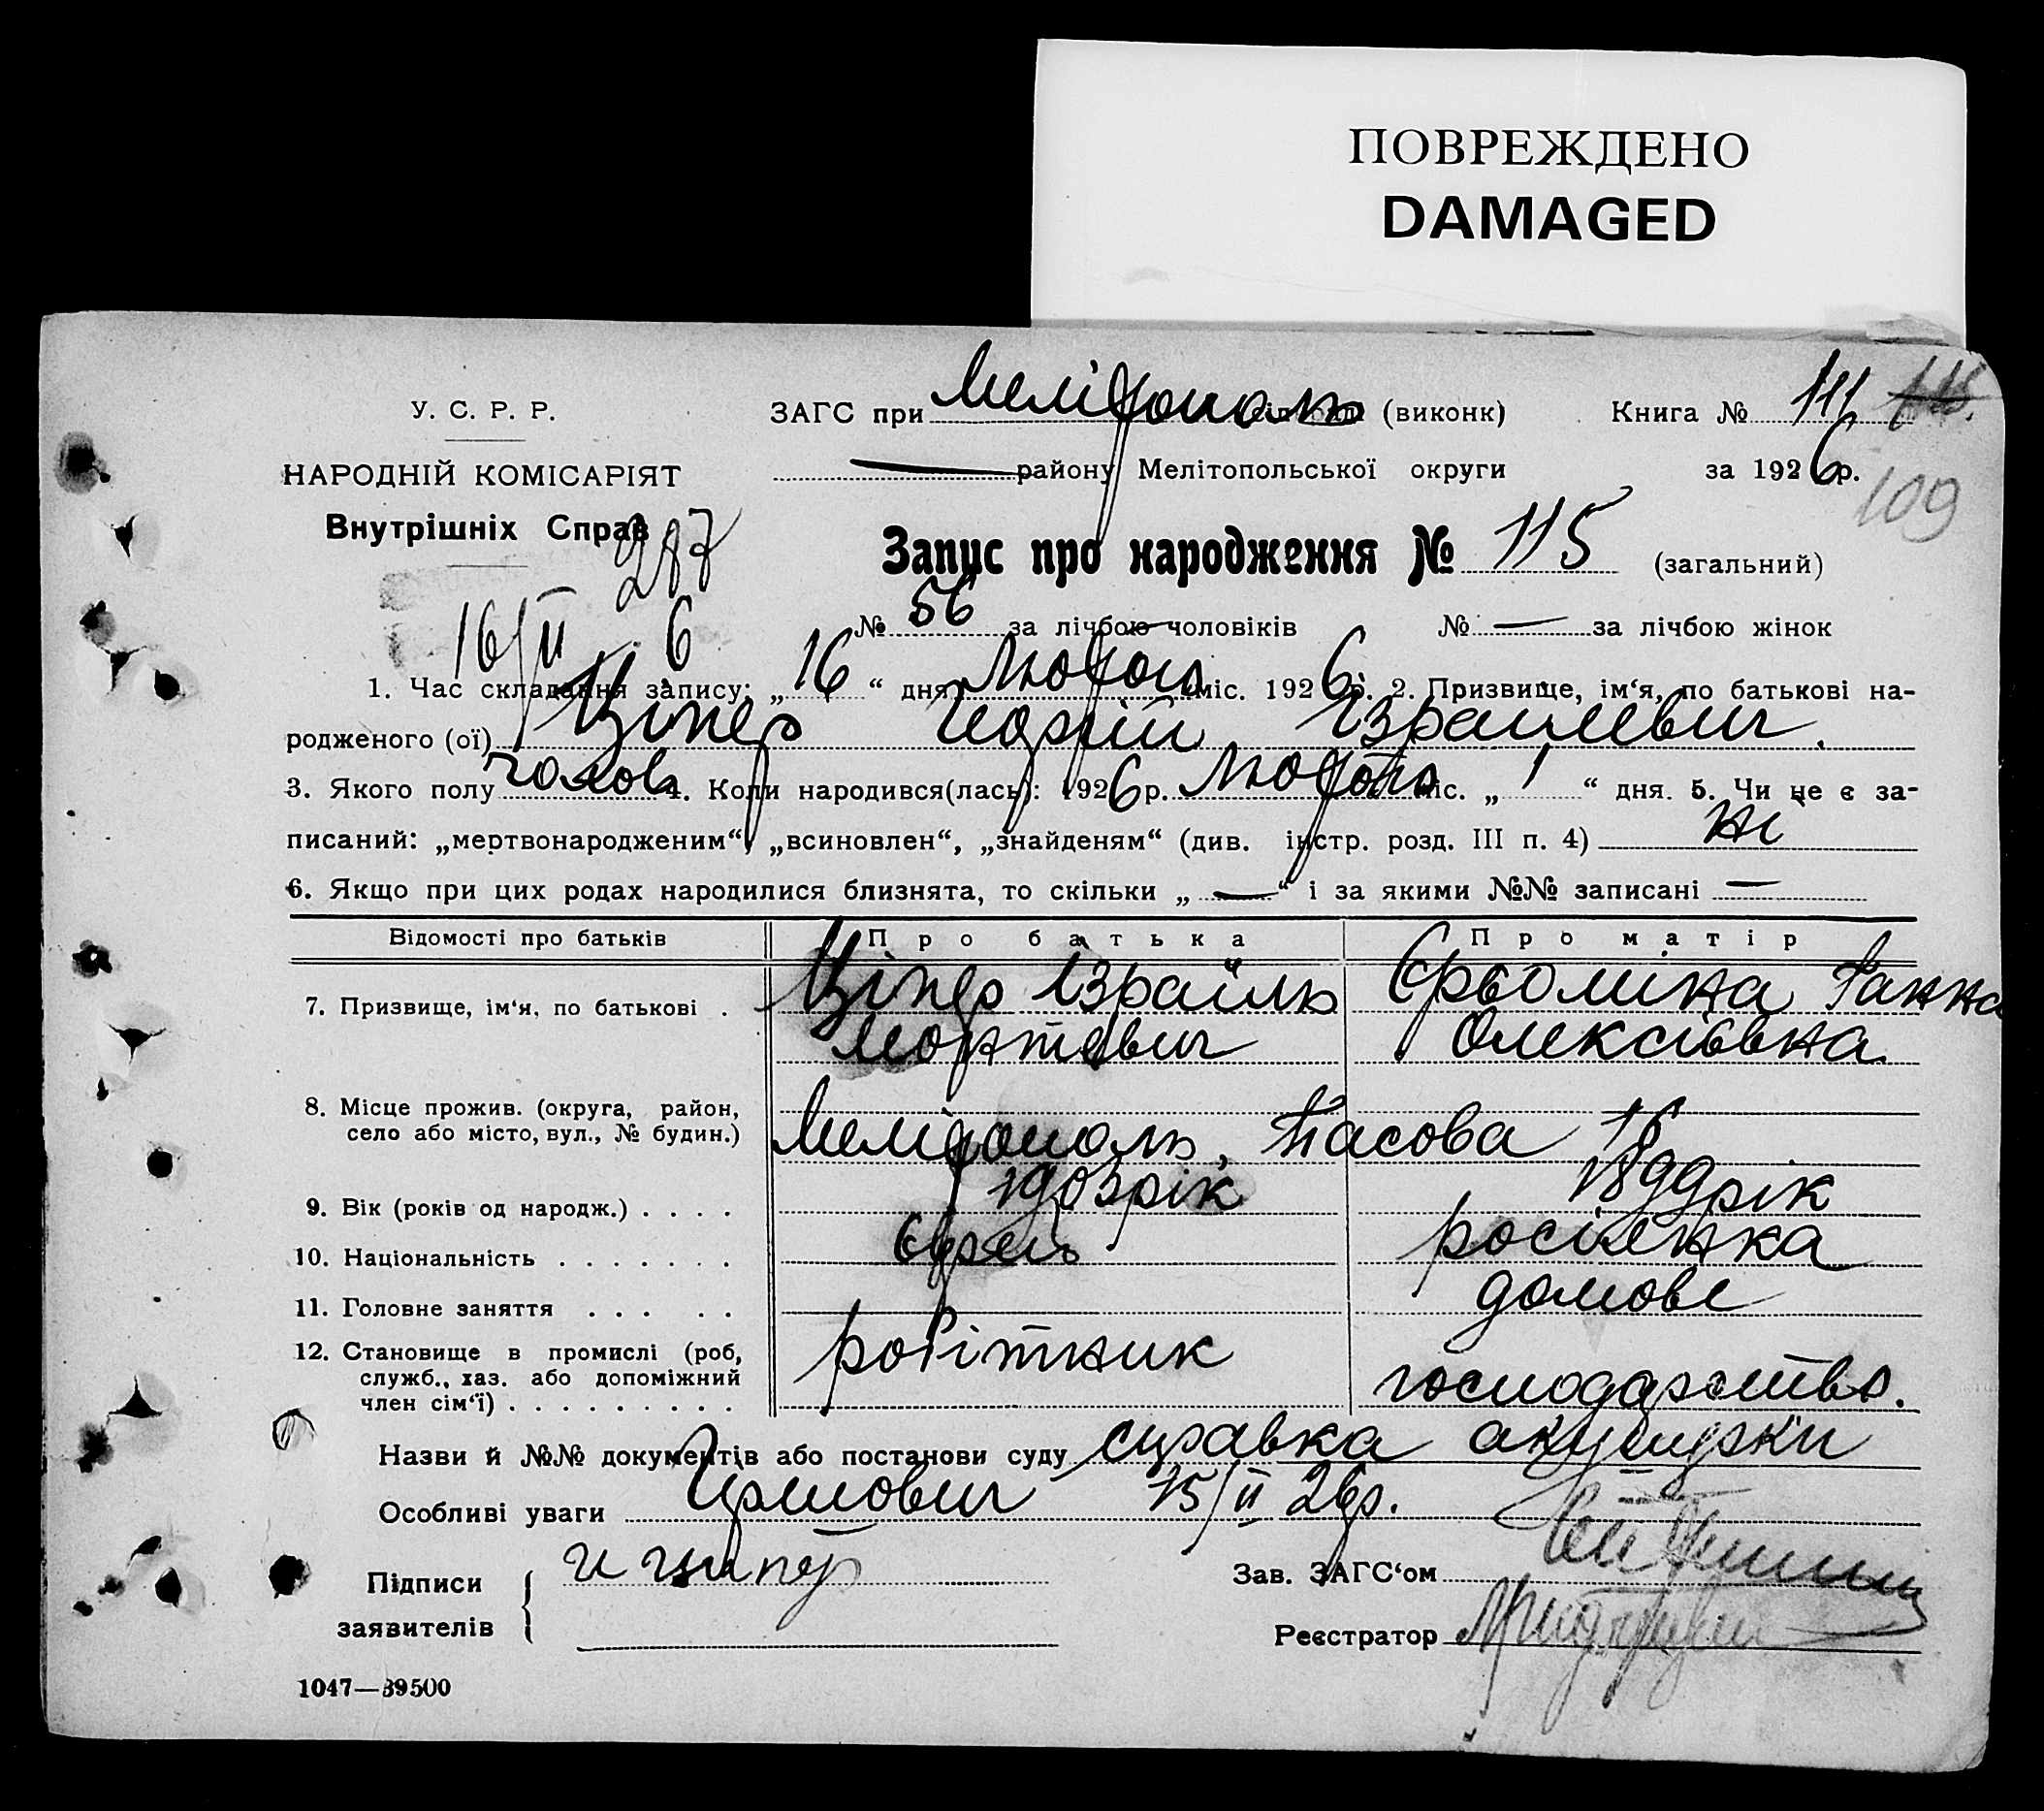 ПОВРЕЖДЕНО
DAMAGED
У. С. Р. Р.
ЗАГС при Мелітополь (виконк) Книга № 111
НАРОДНІЙ КОМІСАРІЯТ
району Мелітопольської округи за 1926 р.
109
Внутрішніх Справ
287
Запис про народження № 115 (загальний)
16/II 6
№ 56 за лічбою чоловіків № — за лічбою жінок
1. Час складання запису: „16“ дня Лютого міс. 1926 р. 2. Призвище, ім‘я, по батькові на-
родженого (ої) Ціпер Юрій Ізраілевич.
3. Якого полу чолов 4. Коли народився(лась): 1926 р. Лютого міс. „1“ дня. 5. Чи не є за-
писаний: „мертвонародженим“, „всиновлен“, „знайденям“ (див. інстр. розд. III п. 4) ні
6. Якщо при цих родах народилися близнята, то скільки „—“ і за якими №№ записані —
Відомості про батьків Про батька Про матір
7. Призвище, ім‘я, по батькові . Ціпер Ізраїль Ганна
Олексіївна
8. Місце прожив. (округа, район,
село або місто, вул., № будин.) Мелітополь, Тасова 16
9. Вік (років од народж.) . . . . 1903 рік 1899 рік
10. Національність . . . . . . . Єврей росіянка
11. Головне заняття . . . . . домове
12. Становище в промислі (роб, робітник
служб., хаз. або допоміжний господарство.
член сім‘ї) . . . . . . . . .
Назви й №№ документів або постанови суду справка акушерки
Особливі уваги 15/II 26 р.
Підписи
заявителів
И Ципер
Зав. ЗАГС‘ом
Реєстратор
1047—39500